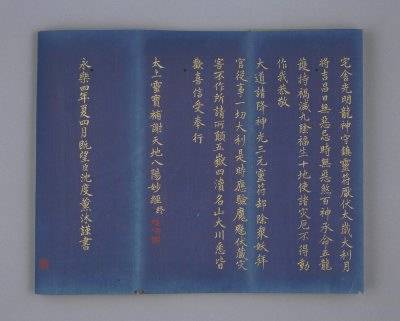 宅舍光明龍神守鎮靈符厭伏太歲大利月
將吉昌日無惡忌時無惡煞百神承合五龍
護持禍滅九陰福生十地使諸災厄不得動
作我恭敬
大道請降神光三元靈符却除衆妖拜
官從事一切大利是時應驗魔魅伏藏災
害不作所請所願五嶽四瀆名山大川悉皆
歡喜信受奉行
太上靈寶補謝天地八陽妙經終
永樂四年夏四月既望臣沈度薰沐謹書